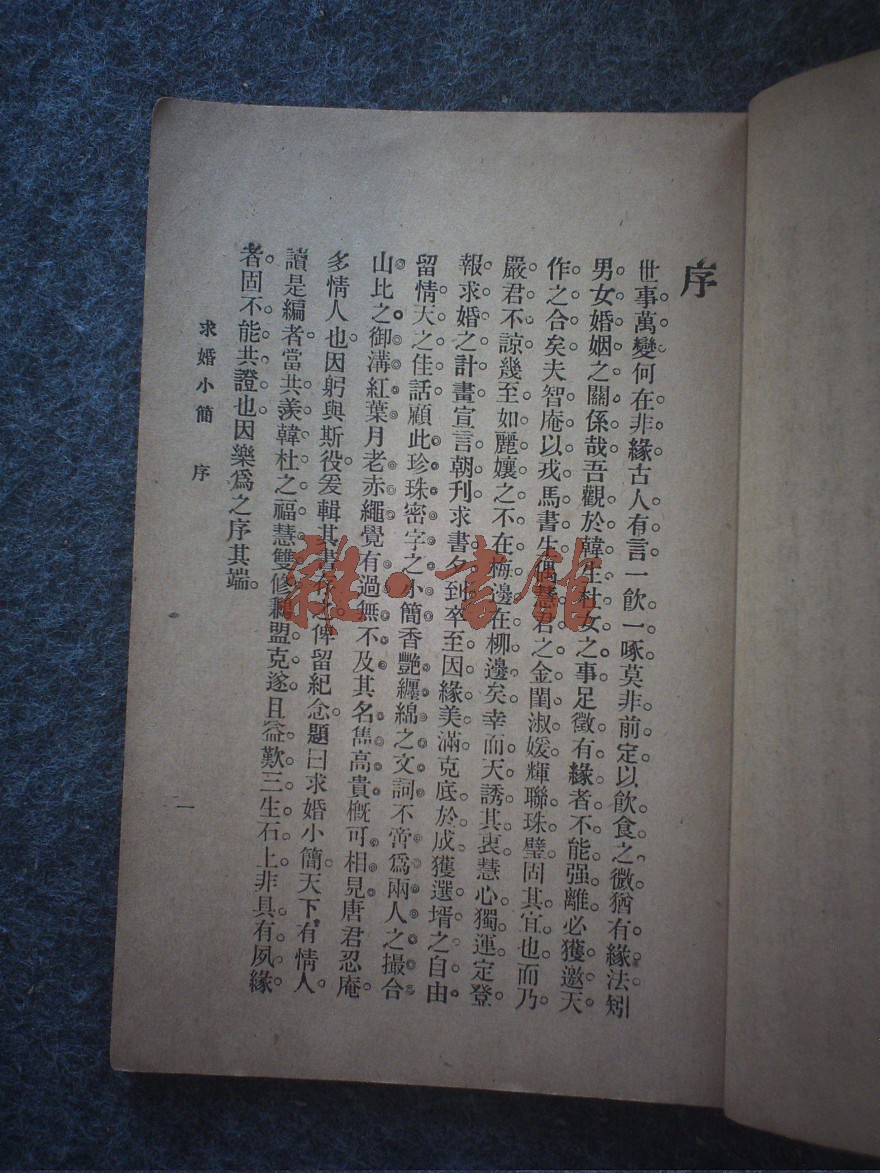 序
世事萬變何在非緣古人有言一飲一啄莫非前定以飲食之微猶有緣法矧
男女婚姻之關係哉吾觀於韓生杜女之事足徵有緣者不能强離必獲邀天
作之合矣夫智庵以戎馬書生偶慧君之金閨淑媛輝聯珠璧固其宜也而乃
嚴君不諒幾至如麗孃之不在梅邊在柳邊矣幸而天誘其衷慧心獨運定登
報求婚之計畫宣言朝刊求書夕到卒至因緣美滿克底於成獲選壻之自由
留情天之佳話顧此珍珠密字之小簡香艷纏綿之文詞不啻爲兩人之撮合
山比之御溝紅葉月老赤繩覺有過無不及其名雋高貴槪可相見唐君忍庵
多情人也因躬與斯役爰輯其書俾留紀念題曰求婚小簡天下有情人
讀是編者當共羨韓杜之福慧雙修盟克遂且益歎三生石上非具有夙緣
者固不能共證也因樂爲之序其端
求婚小簡 序
一
雜·書館